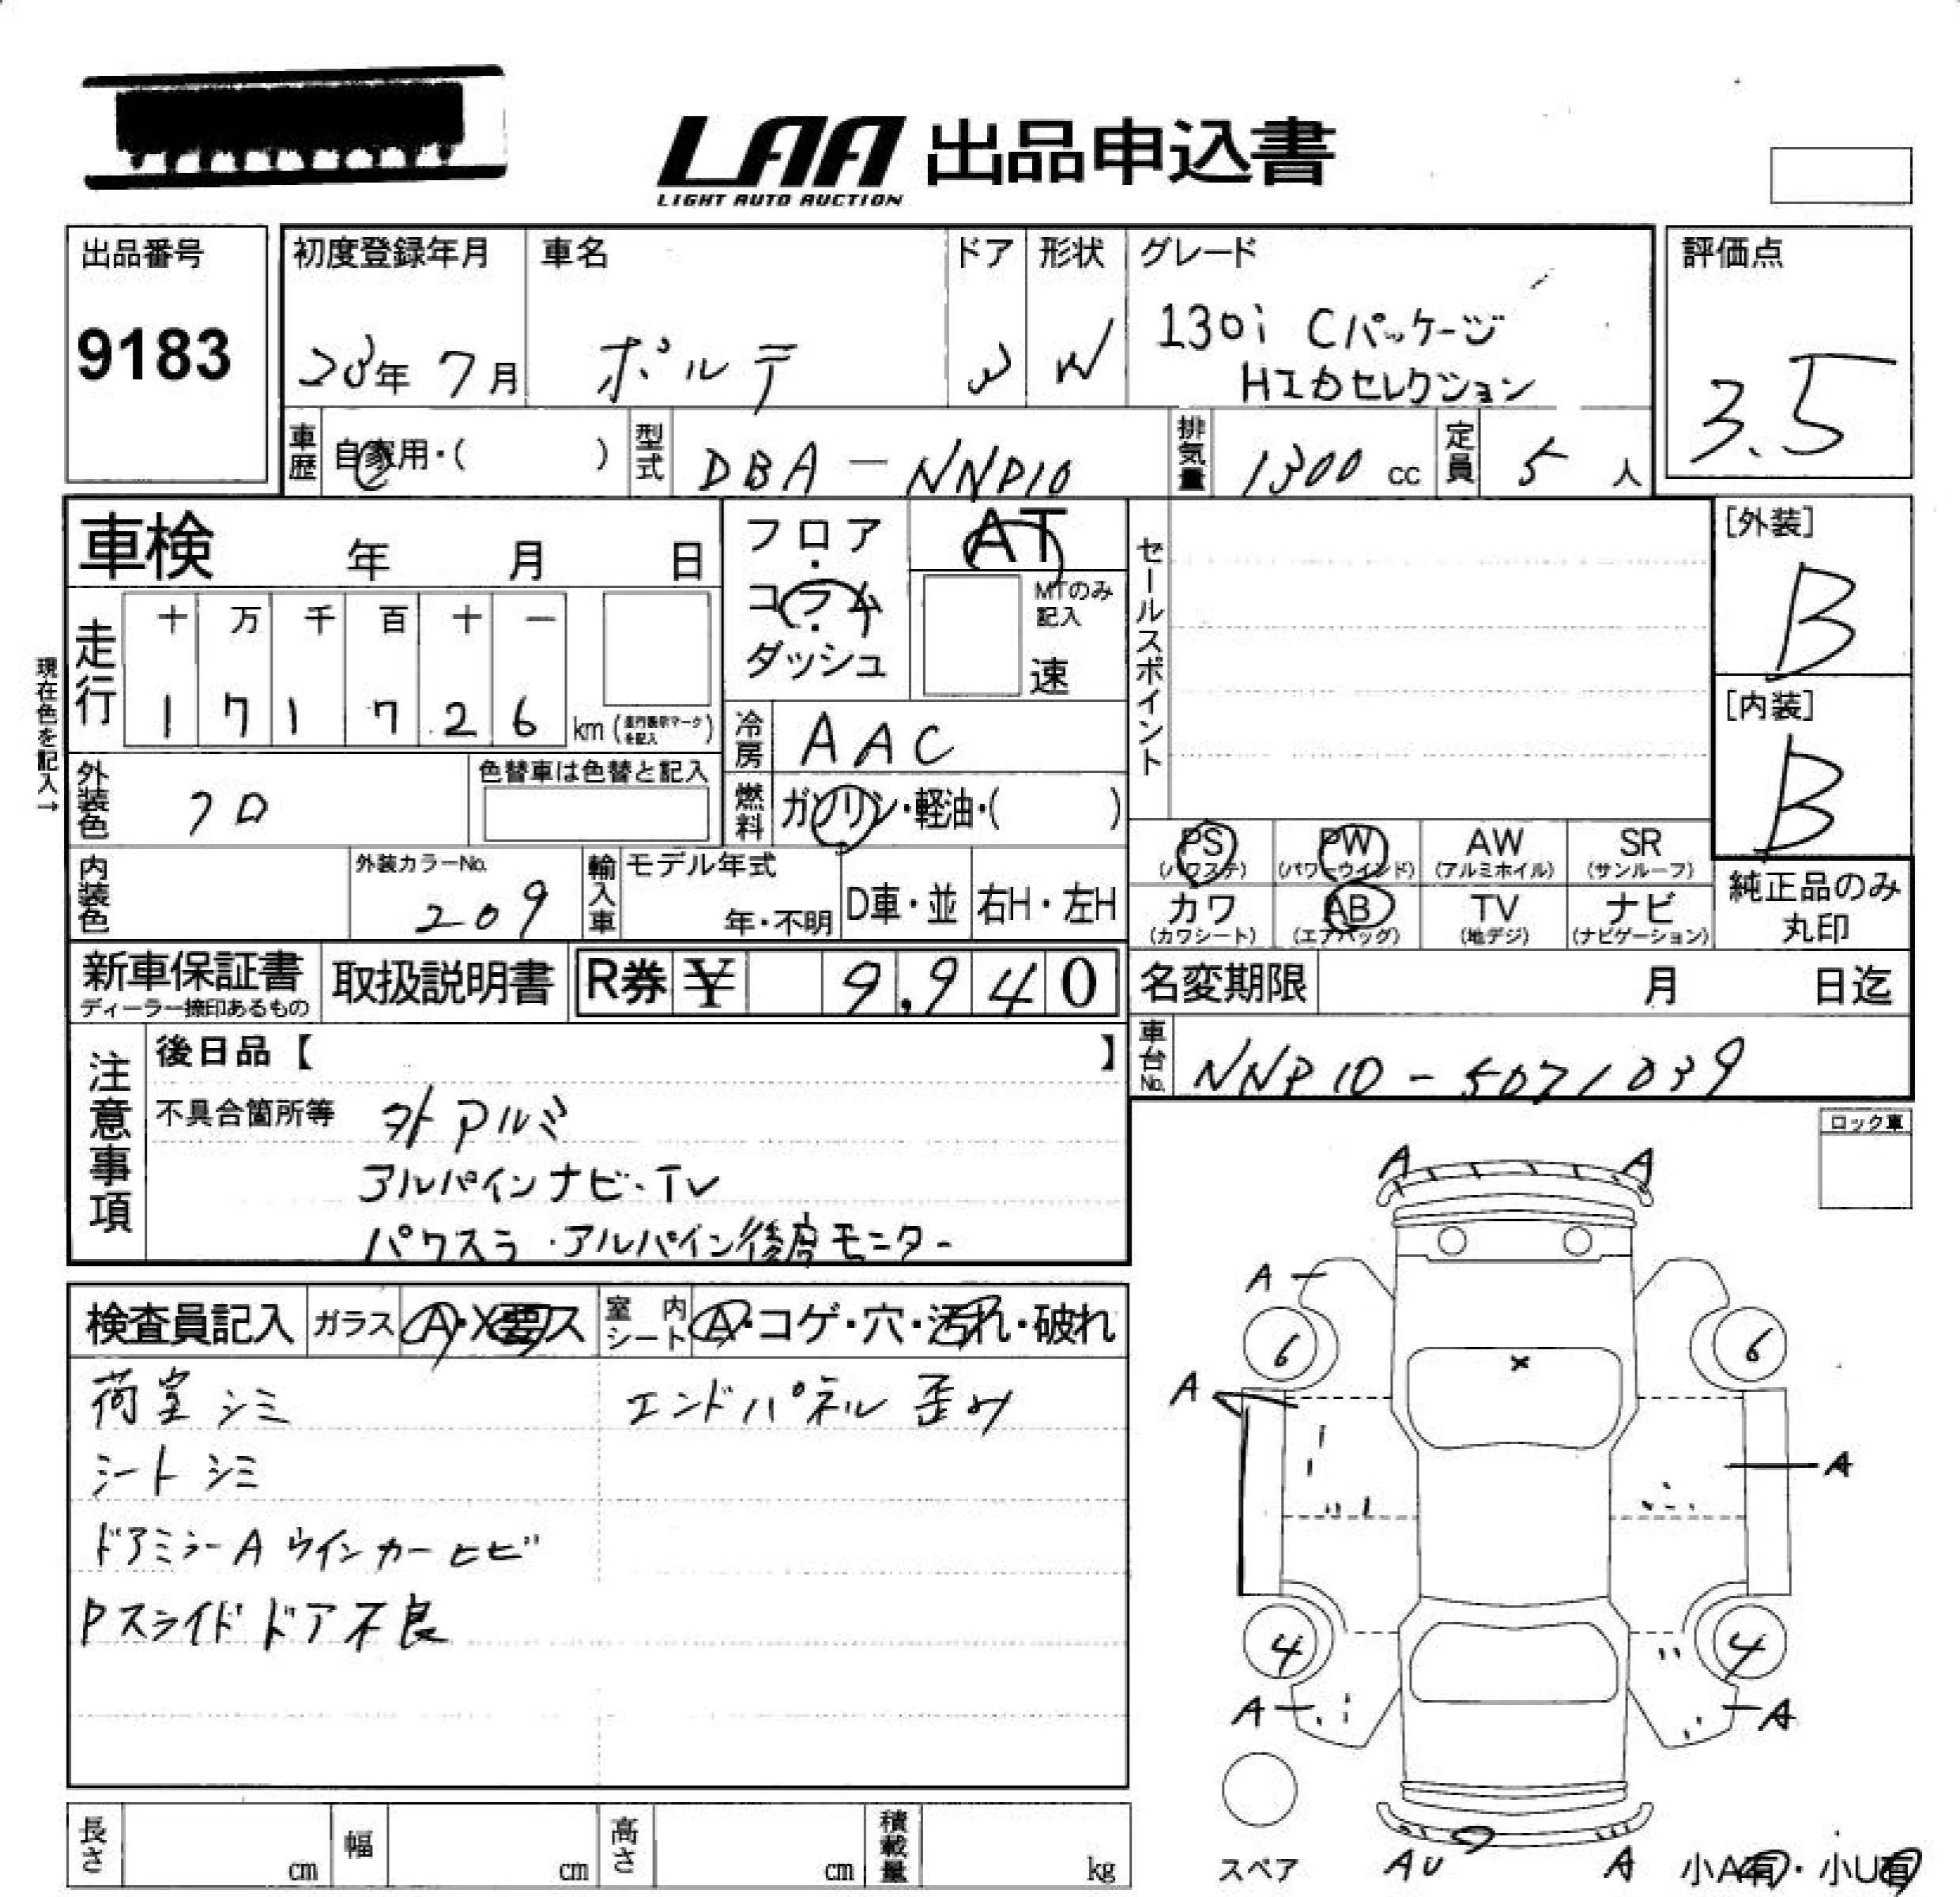 LAA 出品申込書
LIGHT AUTO AUCTION
出品番号
9183
初度登録年月
20年 7月
車名
ポルテ
ドア
形状
W
グレード
130i Cパッケージ
HIDセレクション
評価点
3.5
車歴
自家用・( )
型式
DBA-NNP10
排気量
1300 cc
定員
5 人
車検 年 月 日
フロア・コラム・ダッシュ
AT
MTのみ記入
速
セールスポイント
[外装]
B
[内装]
B
現在色を記入→
走行
十 万 千 百 十 一
1 7 1 7 2 6 km (走行表示マークを記入)
冷房
AAC
外装色
クロ
色替車は色替と記入
燃料
ガソリン・軽油・( )
内装色
外装カラーNo.
209
輸入車
モデル年式
年・不明
D車・並
右H・左H
PS (パワステ)
PW (パワーウインド)
AW (アルミホイル)
SR (サンルーフ)
カワ (カワシート)
AB (エアバッグ)
TV (地デジ)
ナビ (ナビゲーション)
純正品のみ丸印
新車保証書
ディーラー捺印あるもの
取扱説明書
R券 ¥ 9,940
名変期限 月 日迄
車台No.
NNP10-5071039
注意事項
後日品【 】
不具合箇所等
外アルミ
アルパインナビ・TV
パワスラ・アルパイン後席モニター
ロック車
検査員記入
ガラス
A・X要ス
室内シート
A・コゲ・穴・汚れ・破れ
荷室シミ
エンドパネル歪み
シートシミ
ドアミラーA ウインカーヒビ
Pスライドドア不良
A A
A
6 6
×
A
A
4 4
A A
スペア
AU A
小A有・小U有
長さ cm
幅 cm
高さ cm
積載量 kg